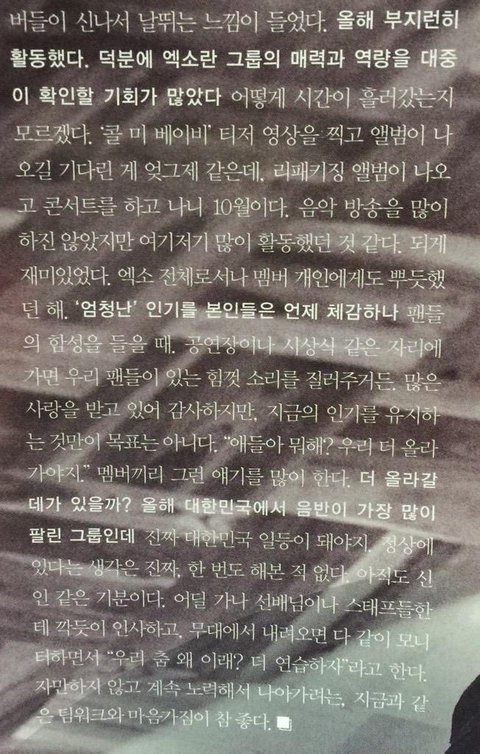 버들이 신나서 날뛰는 느낌이 들었다. 올해 부지런히
활동했다. 덕분에 엑소란 그룹의 매력과 역량을 대중
이 확인할 기회가 많았다 어떻게 시간이 흘러갔는지
모르겠다. ‘콜 미 베이비’ 티저 영상을 찍고 앨범이 나
오길 기다린 게 엊그제 같은데, 리패키징 앨범이 나오
고 콘서트를 하고 나니 10월이다. 음악 방송을 많이
하진 않았지만 여기저기 많이 활동했던 것 같다. 되게
재미있었다. 엑소 전체로서나 멤버 개인에게도 뿌듯했
던 해. ‘엄청난’ 인기를 본인들은 언제 체감하나 팬들
의 함성을 들을 때. 공연장이나 시상식 같은 자리에
가면 우리 팬들이 있는 힘껏 소리를 질러주거든. 많은
사랑을 받고 있어 감사하지만, 지금의 인기를 유지하
는 것만이 목표는 아니다. “얘들아 뭐해? 우리 더 올라
가야지.” 멤버끼리 그런 얘기를 많이 한다. 더 올라갈
데가 있을까? 올해 대한민국에서 음반이 가장 많이
팔린 그룹인데 진짜 대한민국 일등이 돼야지. 정상에
있다는 생각은 진짜, 한 번도 해본 적 없다. 아직도 신
인 같은 기분이다. 어딜 가나 선배님이나 스태프들한
테 깍듯이 인사하고, 무대에서 내려오면 다 같이 모니
터하면서 “우리 춤 왜 이래? 더 연습하자”라고 한다.
자만하지 않고 계속 노력해서 나아가려는, 지금과 같
은 팀워크와 마음가짐이 참 좋다.